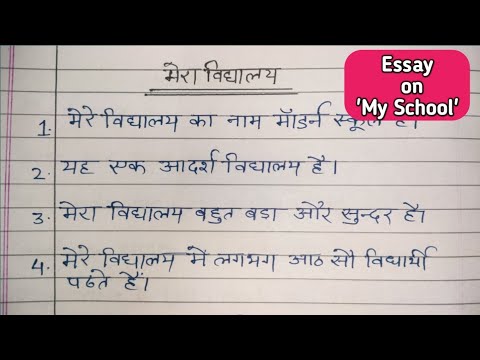 मेरा विद्यालय
Essay
on
'My School'
1. मेरे विद्यालय का नाम मॉडर्न स्कूल है।
2. यह एक आदर्श विद्यालय है।
3. मेरा विद्यालय बहुत बडा और सुन्दर है।
4. मेरे विद्यालय में लगभग आठ सौ विद्यार्थी
पढते हैं।